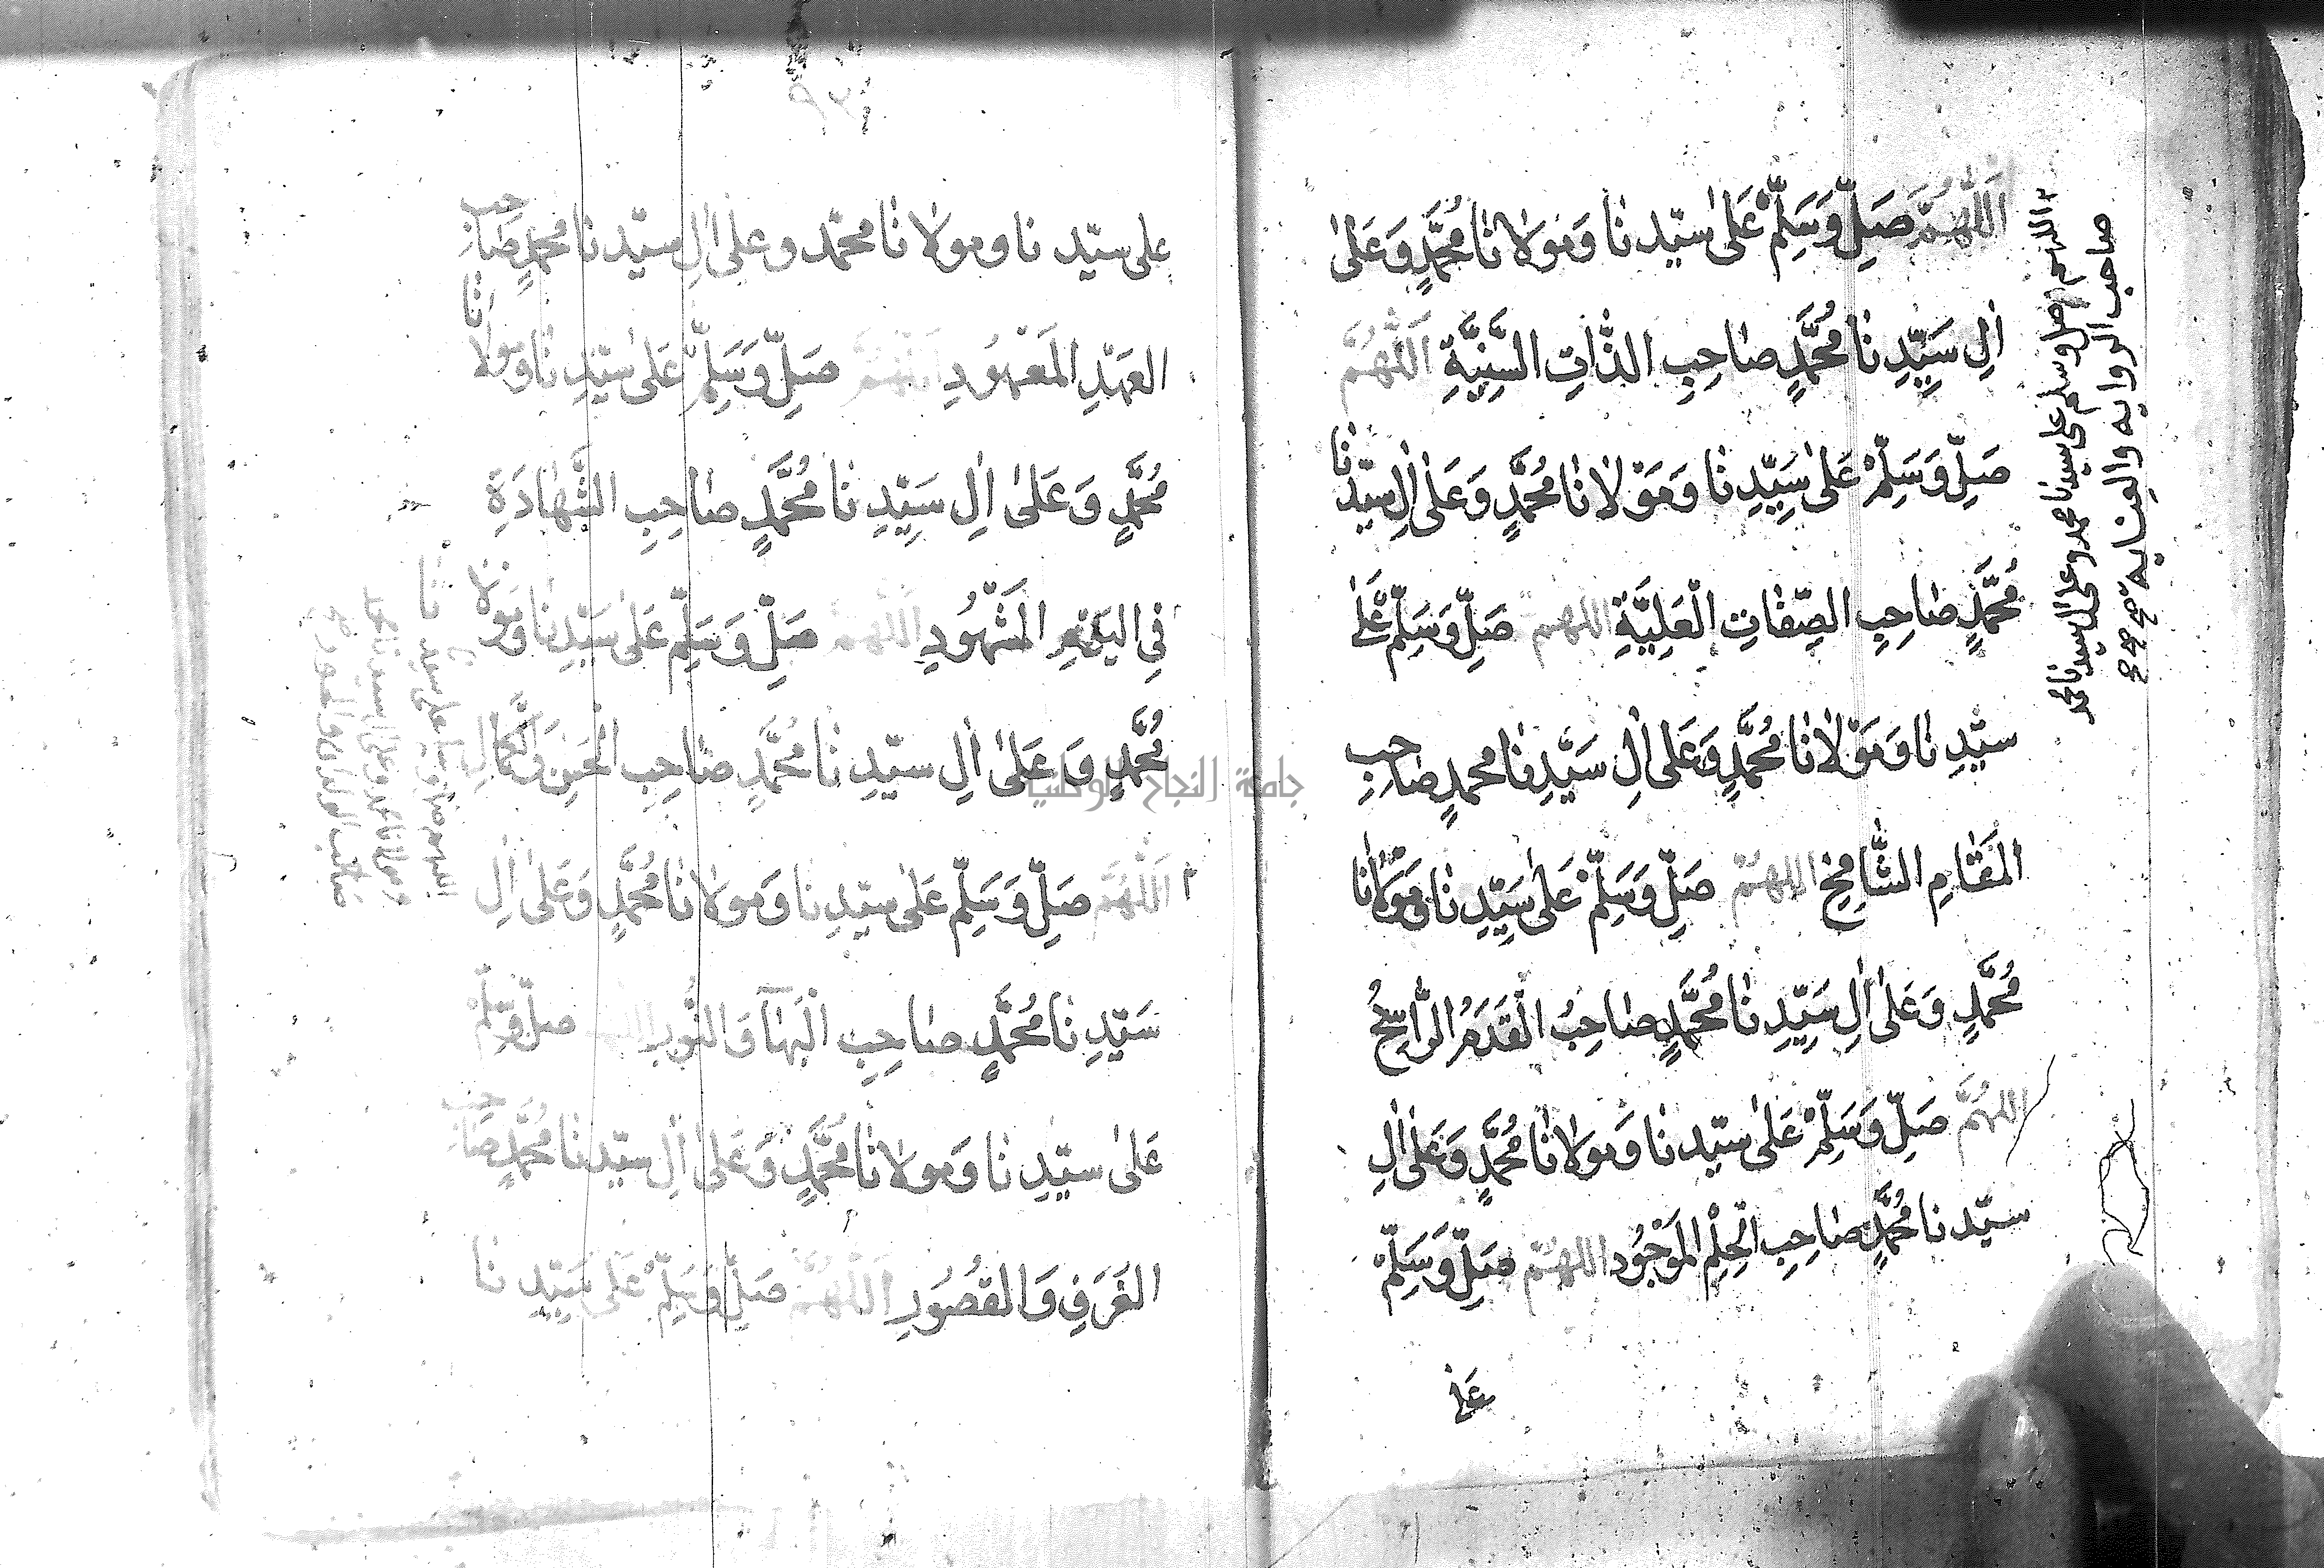 اَللّٰهُمَّ صَلِّ وَسَلِّمْ عَلىٰ سيّدنا وَمَوْلانا مُحَمَّدٍ وَعَلىٰ
اٰلِ سَيِّدِنا مُحَمَّدٍ صاحِبِ الذّاتِ السَّنِيَّةِ اَللّٰهُمَّ
صَلِّ وَسَلِّمْ عَلىٰ سَيِّدِنا وَمَوْلانا مُحَمَّدٍ وَعَلىٰ اٰلِ سيّدنا
مُحَمَّدٍ صاحِبِ الصِّفاتِ الْعَلِيَّةِ اللهم صَلِّ وَسَلِّمْ عَلىٰ
سيّدِنا وَمَوْلانا مُحَمَّدٍ وَعَلىٰ اٰلِ سَيِّدِنا محمدٍ صاحِبِ
المَقامِ الشّامِخِ اللهمّ صَلِّ وَسَلِّمْ عَلىٰ سَيِّدِنا وَمَوْلانا
مُحَمَّدٍ وَعَلىٰ اٰلِ سَيِّدِنا مُحَمَّدٍ صاحِبُ الْقَدَمِ الرّاسِخِ
اللهُمَّ صَلِّ وَسَلِّمْ عَلىٰ سيّدنا وَمولانا مُحَمَّدٍ وَعَلىٰ اٰلِ
سيّدنا مُحَمَّدٍ صاحِبِ الحِلْمِ المَوْجُودِ اللهمّ صَلِّ وَسَلِّمْ
عَلىٰ
اللهم صل وسلم على سيدنا محمد وعلى ال سيدنا محمد
صاحب الروايه والعنايه صح صح صح
على سيّدنا ومولانا محمّد وعلى اٰلِ سيّدنا محمدٍ صاحب
العَهْدِ المَعْهُودِ اَللّٰهُمَّ صَلِّ وَسَلِّمْ عَلىٰ سيّدِنا ومولانا
مُحَمَّدٍ وَعَلىٰ اٰلِ سَيِّدِنا مُحَمَّدٍ صاحِبِ الشَّهادَةِ
فِي اليَوْمِ المَشْهُودِ اللهم صَلِّ وَسَلِّم عَلىٰ سَيِّدِنا وَمَولا
مُحَمَّدٍ وَعَلىٰ اٰلِ سيّدِنا مُحَمَّدٍ صاحِبِ الحُسْنِ وَالْكَمالِ
اَللّٰهُمَّ صَلِّ وَسَلِّمْ عَلىٰ سيّدِنا وَمولانا مُحَمَّدٍ وَعَلىٰ اٰلِ
سَيِّدِنا مُحَمَّدٍ صاحِبِ الْبَهآءِ وَالنُّورِ اللهم صلّ وسلّمْ
عَلىٰ سيّدِنا وَمولانا مُحَمَّدٍ وَعَلىٰ اٰلِ سيّدنا مُحَمَّدٍ صاحب
الغُرَفِ وَالقُصُورِ اَللّٰهُمَّ صَلِّ وَسَلِّمْ عَلىٰ سَيِّدِنا
على سيدنا
ومولانا محمد وعلى ال سيدنا محمد
صاحب
جامعة النجاح الوطنية